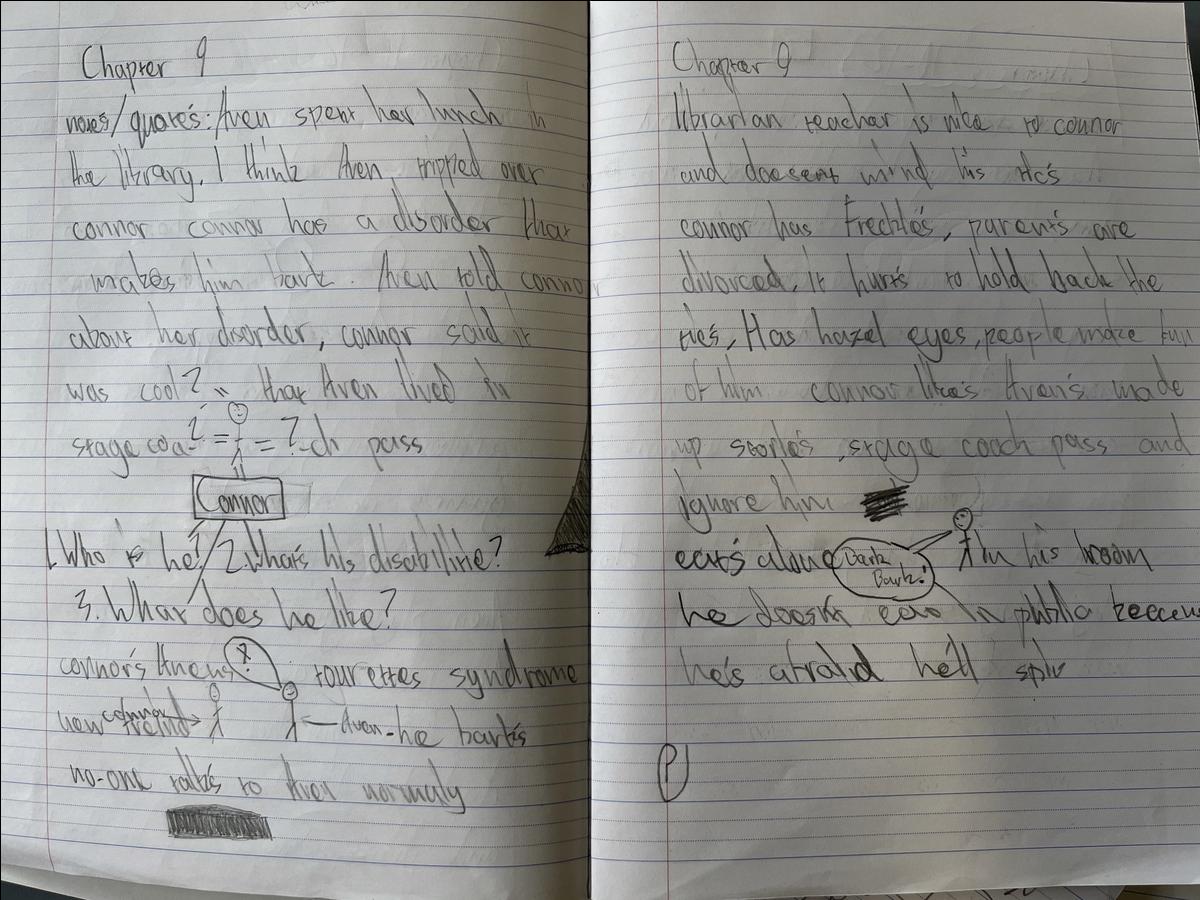 Chapter 9
notes/quotes: Aven spent her lunch in
the library. I think Aven tripped over
connor connor has a disorder that
makes him bark. Aven told connor
about her disorder, connor said it
was cool? that Aven lived in
stage coa-ch pass
? = = ?
Connor
1. Who is he? 2. What's his disabilitie?
3. What does he like?
connor's Aven's tourettes syndrome
?
new freind connor
Aven - he bark's
no-one talk's to Aven normaly
Chapter 9
librarian teacher is nice to connor
and doesent mind his tic's
connor has Freckle's, parent's are
divorced, it hurt's to hold back the
tic's, Has hazel eyes, people make fun
of him connor like's Aven's made
up storie's, stage coach pass and
ignore him
eat's alone in his kroom
Bark Bark!
he doesn't eat in public because
he's afraid he'll spit
P